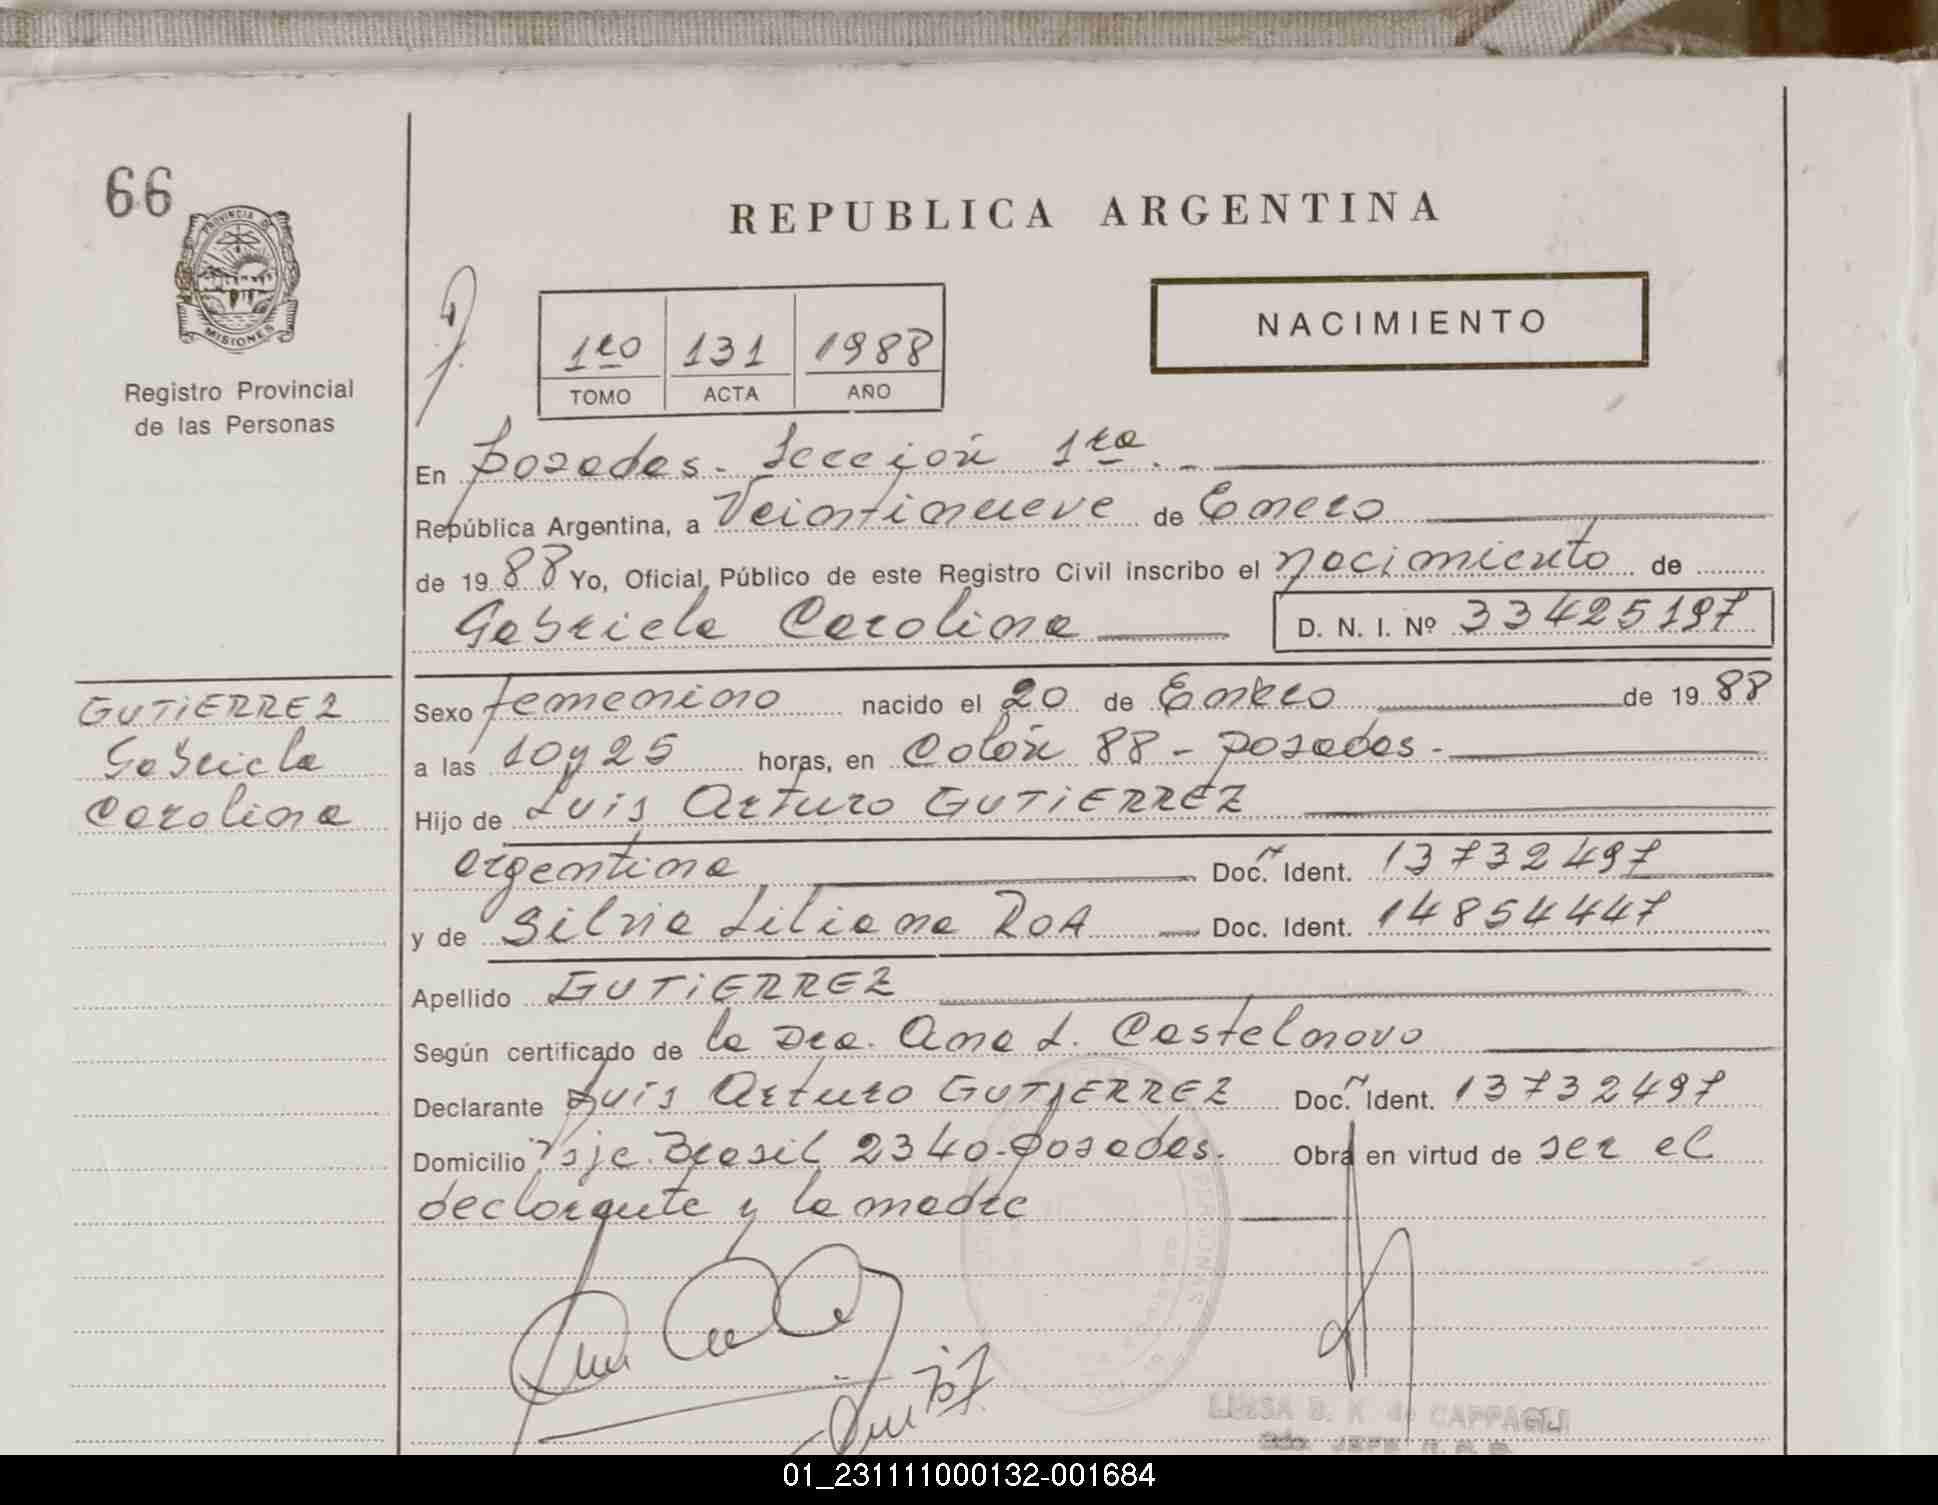 66
PROVINCIA DE
MISIONES
Registro Provincial
de las Personas
REPUBLICA ARGENTINA
1ro 131 1988
TOMO ACTA AÑO
NACIMIENTO
En Posadas - Sección 1ra. -
República Argentina, a Veintinueve de Enero
de 1988 Yo, Oficial Público de este Registro Civil inscribo el nacimiento de
Gabriela Carolina D. N. I. Nº 33425197
GUTIERREZ
Gabriela
Carolina
Sexo femenino nacido el 20 de Enero de 1988
a las 10 y 25 horas, en Colón 88 - Posadas -
Hijo de Luis Arturo GUTIERREZ
argentina Doc. Ident. 13732497
y de Silvia Liliana ROA Doc. Ident. 14854447
Apellido GUTIERREZ
Según certificado de la Dra. Ana L. Castelnovo
Declarante Luis Arturo GUTIERREZ Doc. Ident. 13732497
Domicilio Psje. Brasil 2340 - Posadas. Obra en virtud de ser el
declarante y la madre
LUISA B. K. de CAPPAGLI
01_231111000132-001684